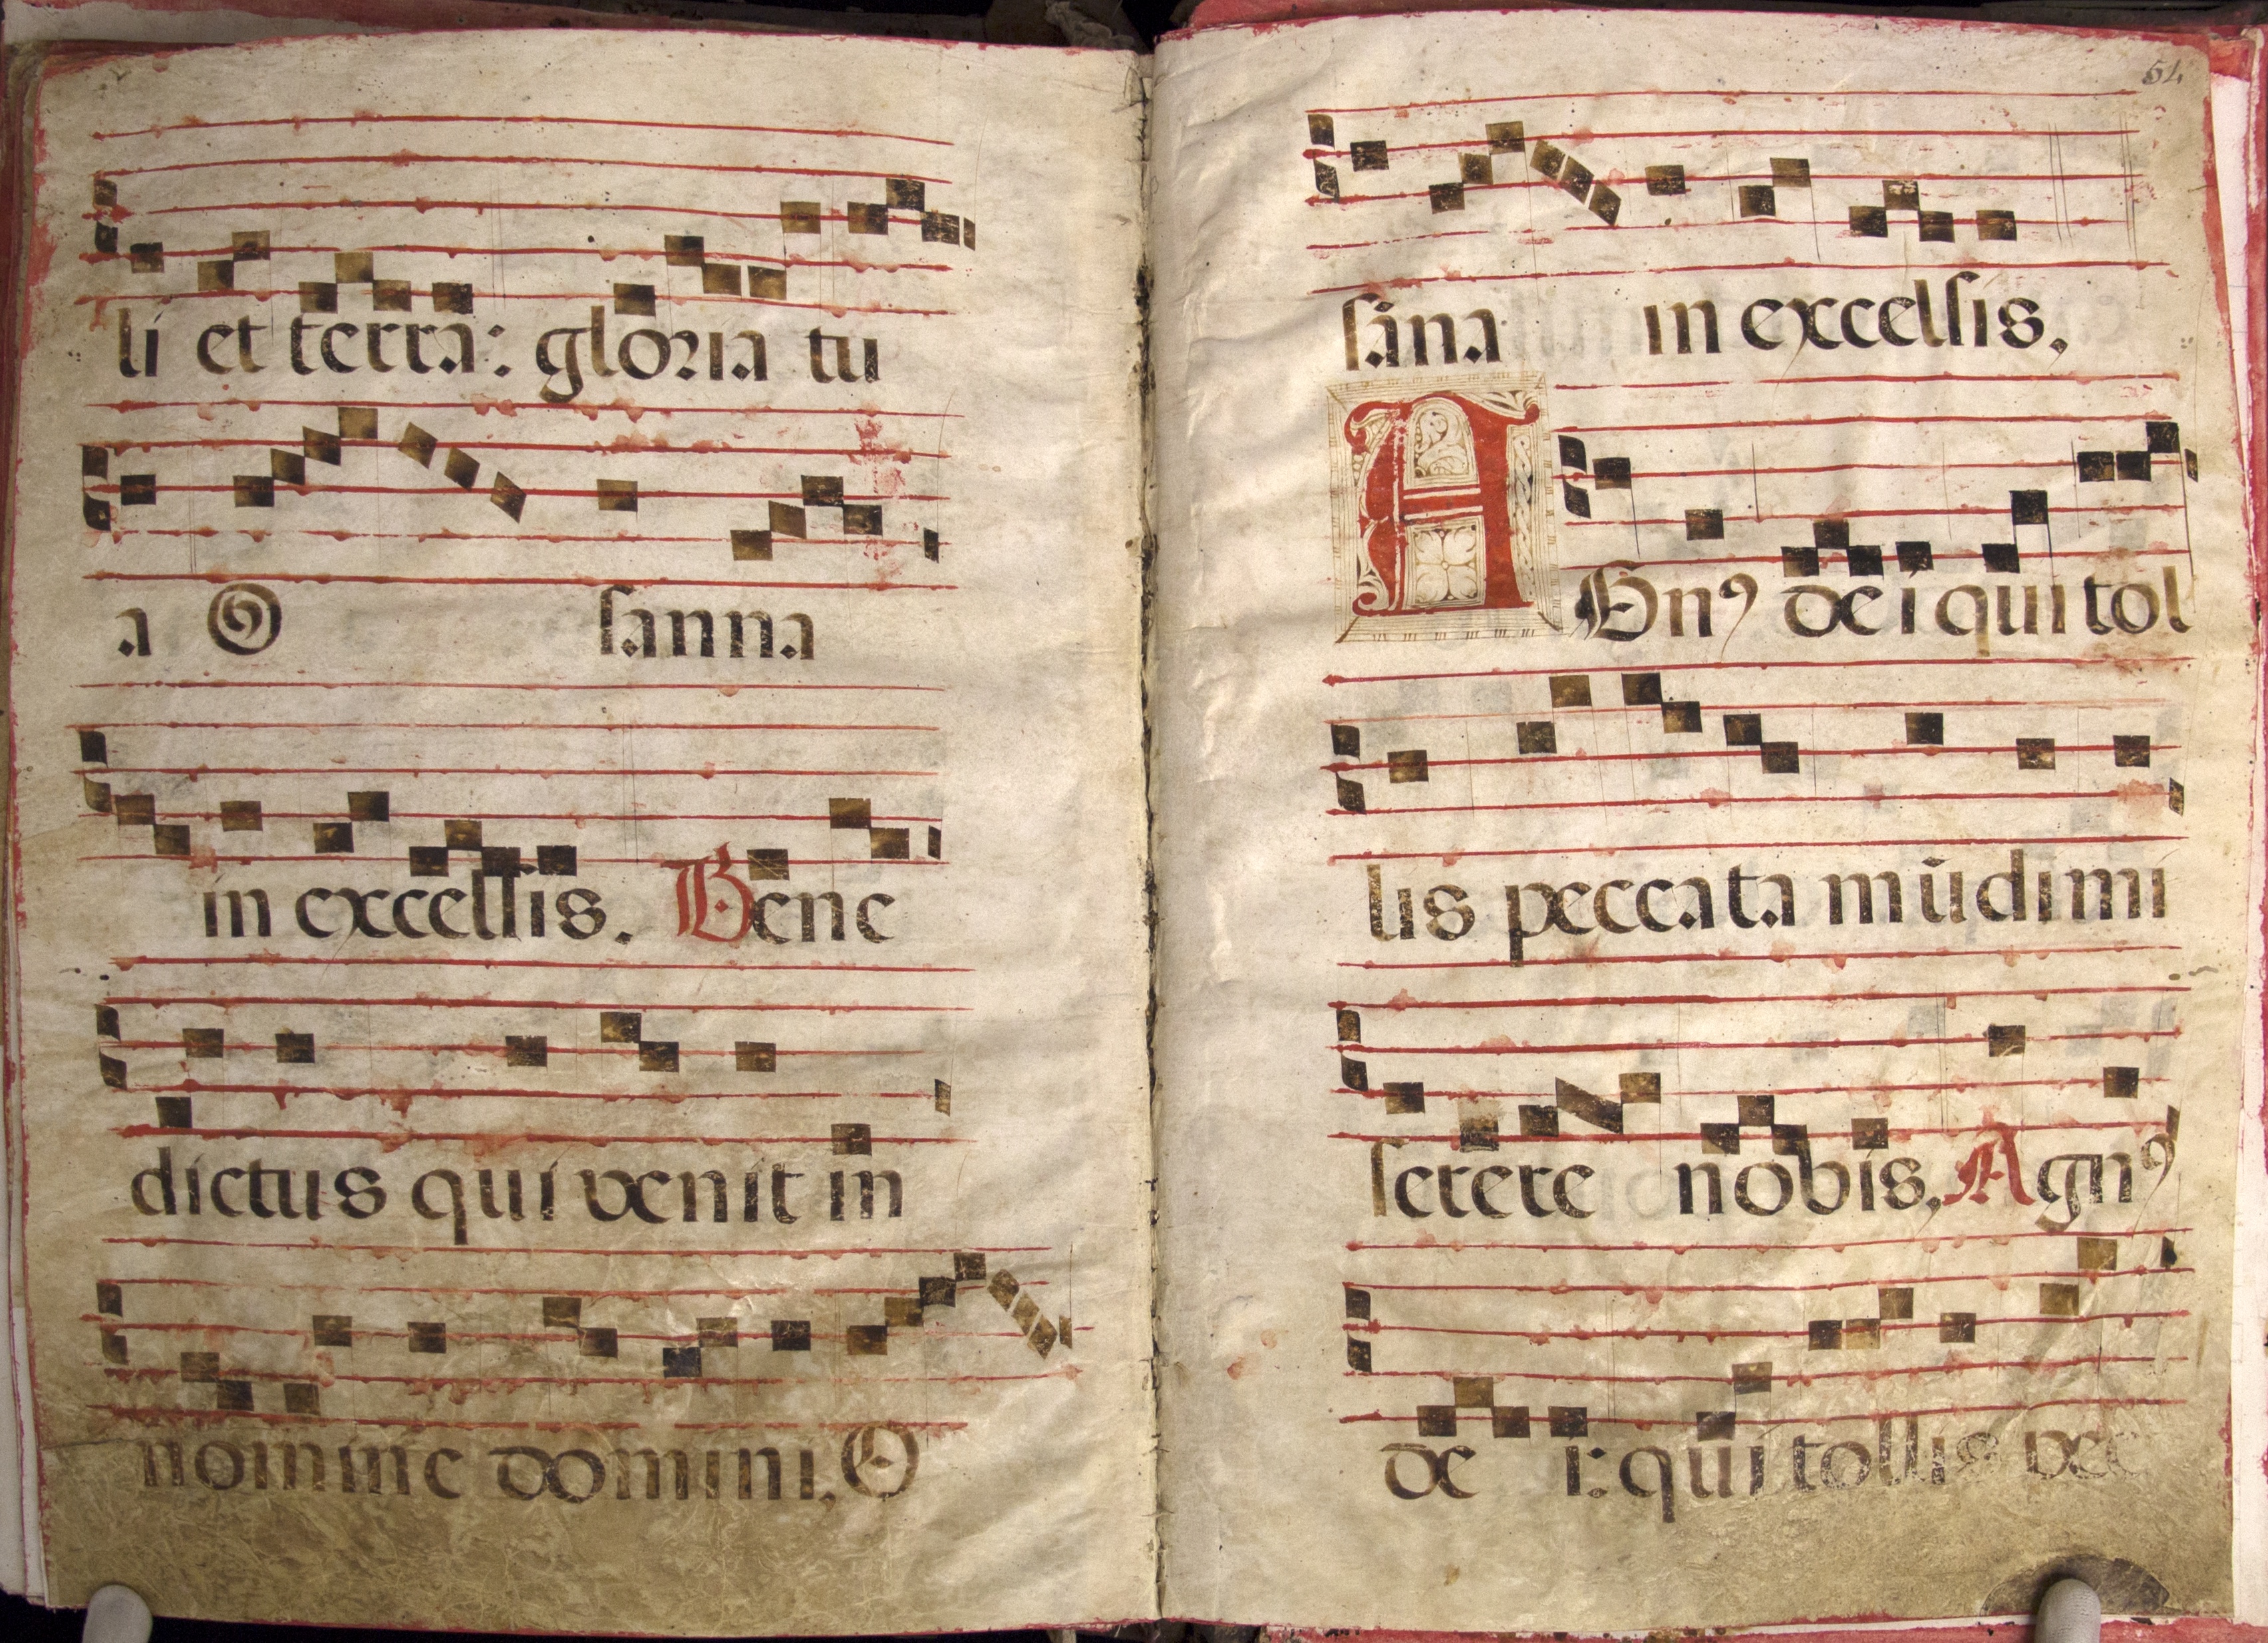 li et terra: gloria tu
a O sanna
in excelsis. Bene
dictus qui venit in
nomine domini, O
54
sana in excelsis,
A Gn⁹ dei qui tol
lis peccata mūdi mi
serere nobis, Agn⁹
de i: qui tollis pec